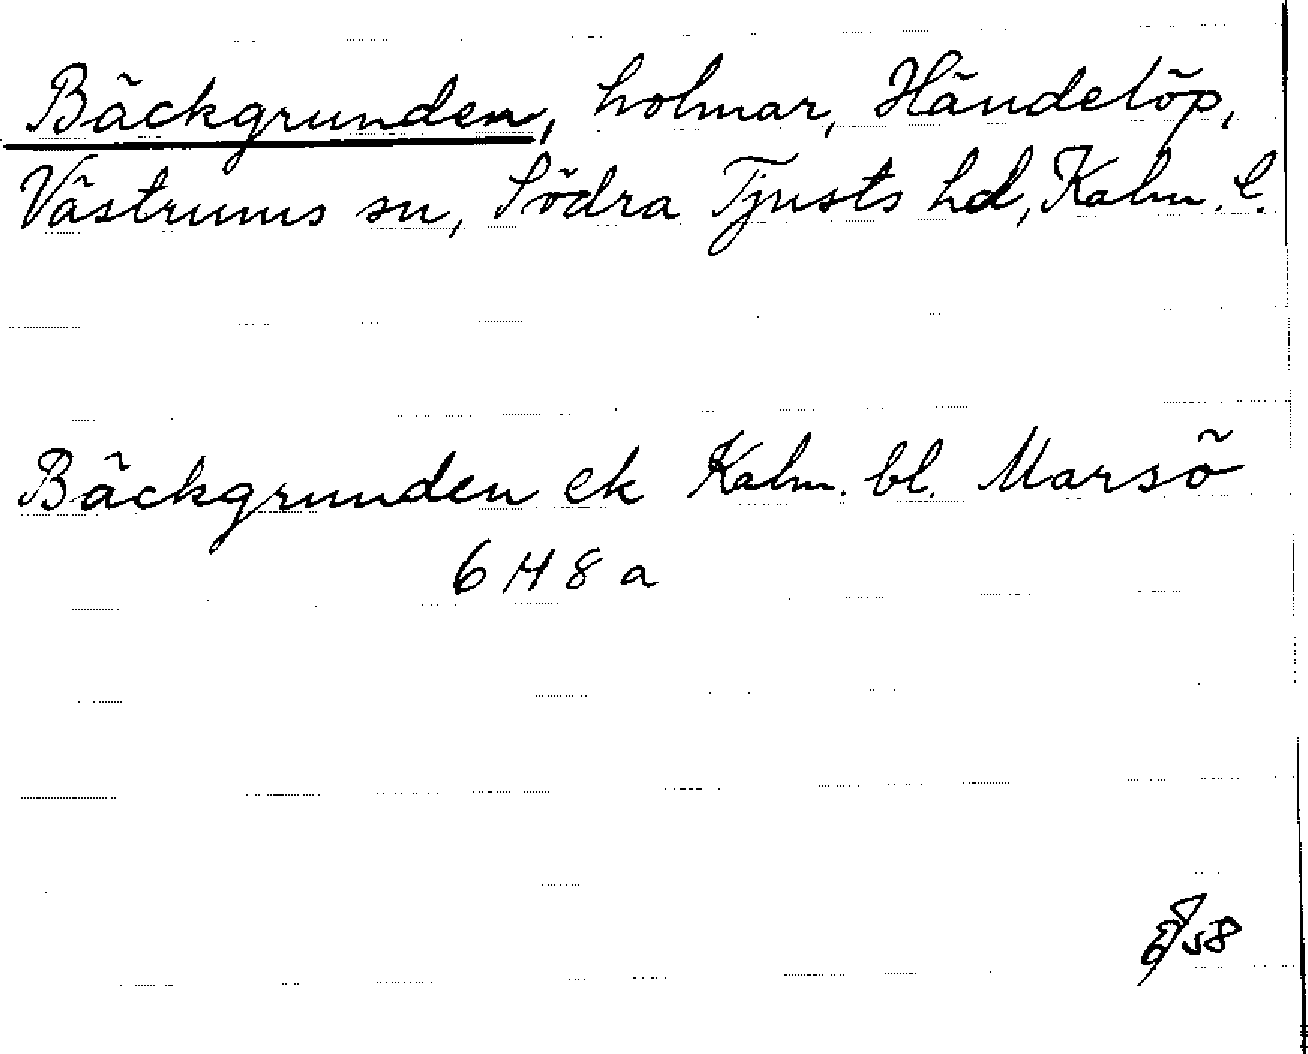 Bäckgrunden, holmar, Händelöp,
Västrums sn, Södra Tjusts hd, Kalm. l.
Bäckgrunden ek Kalm. bl. Marsö
6 H 8 a
58